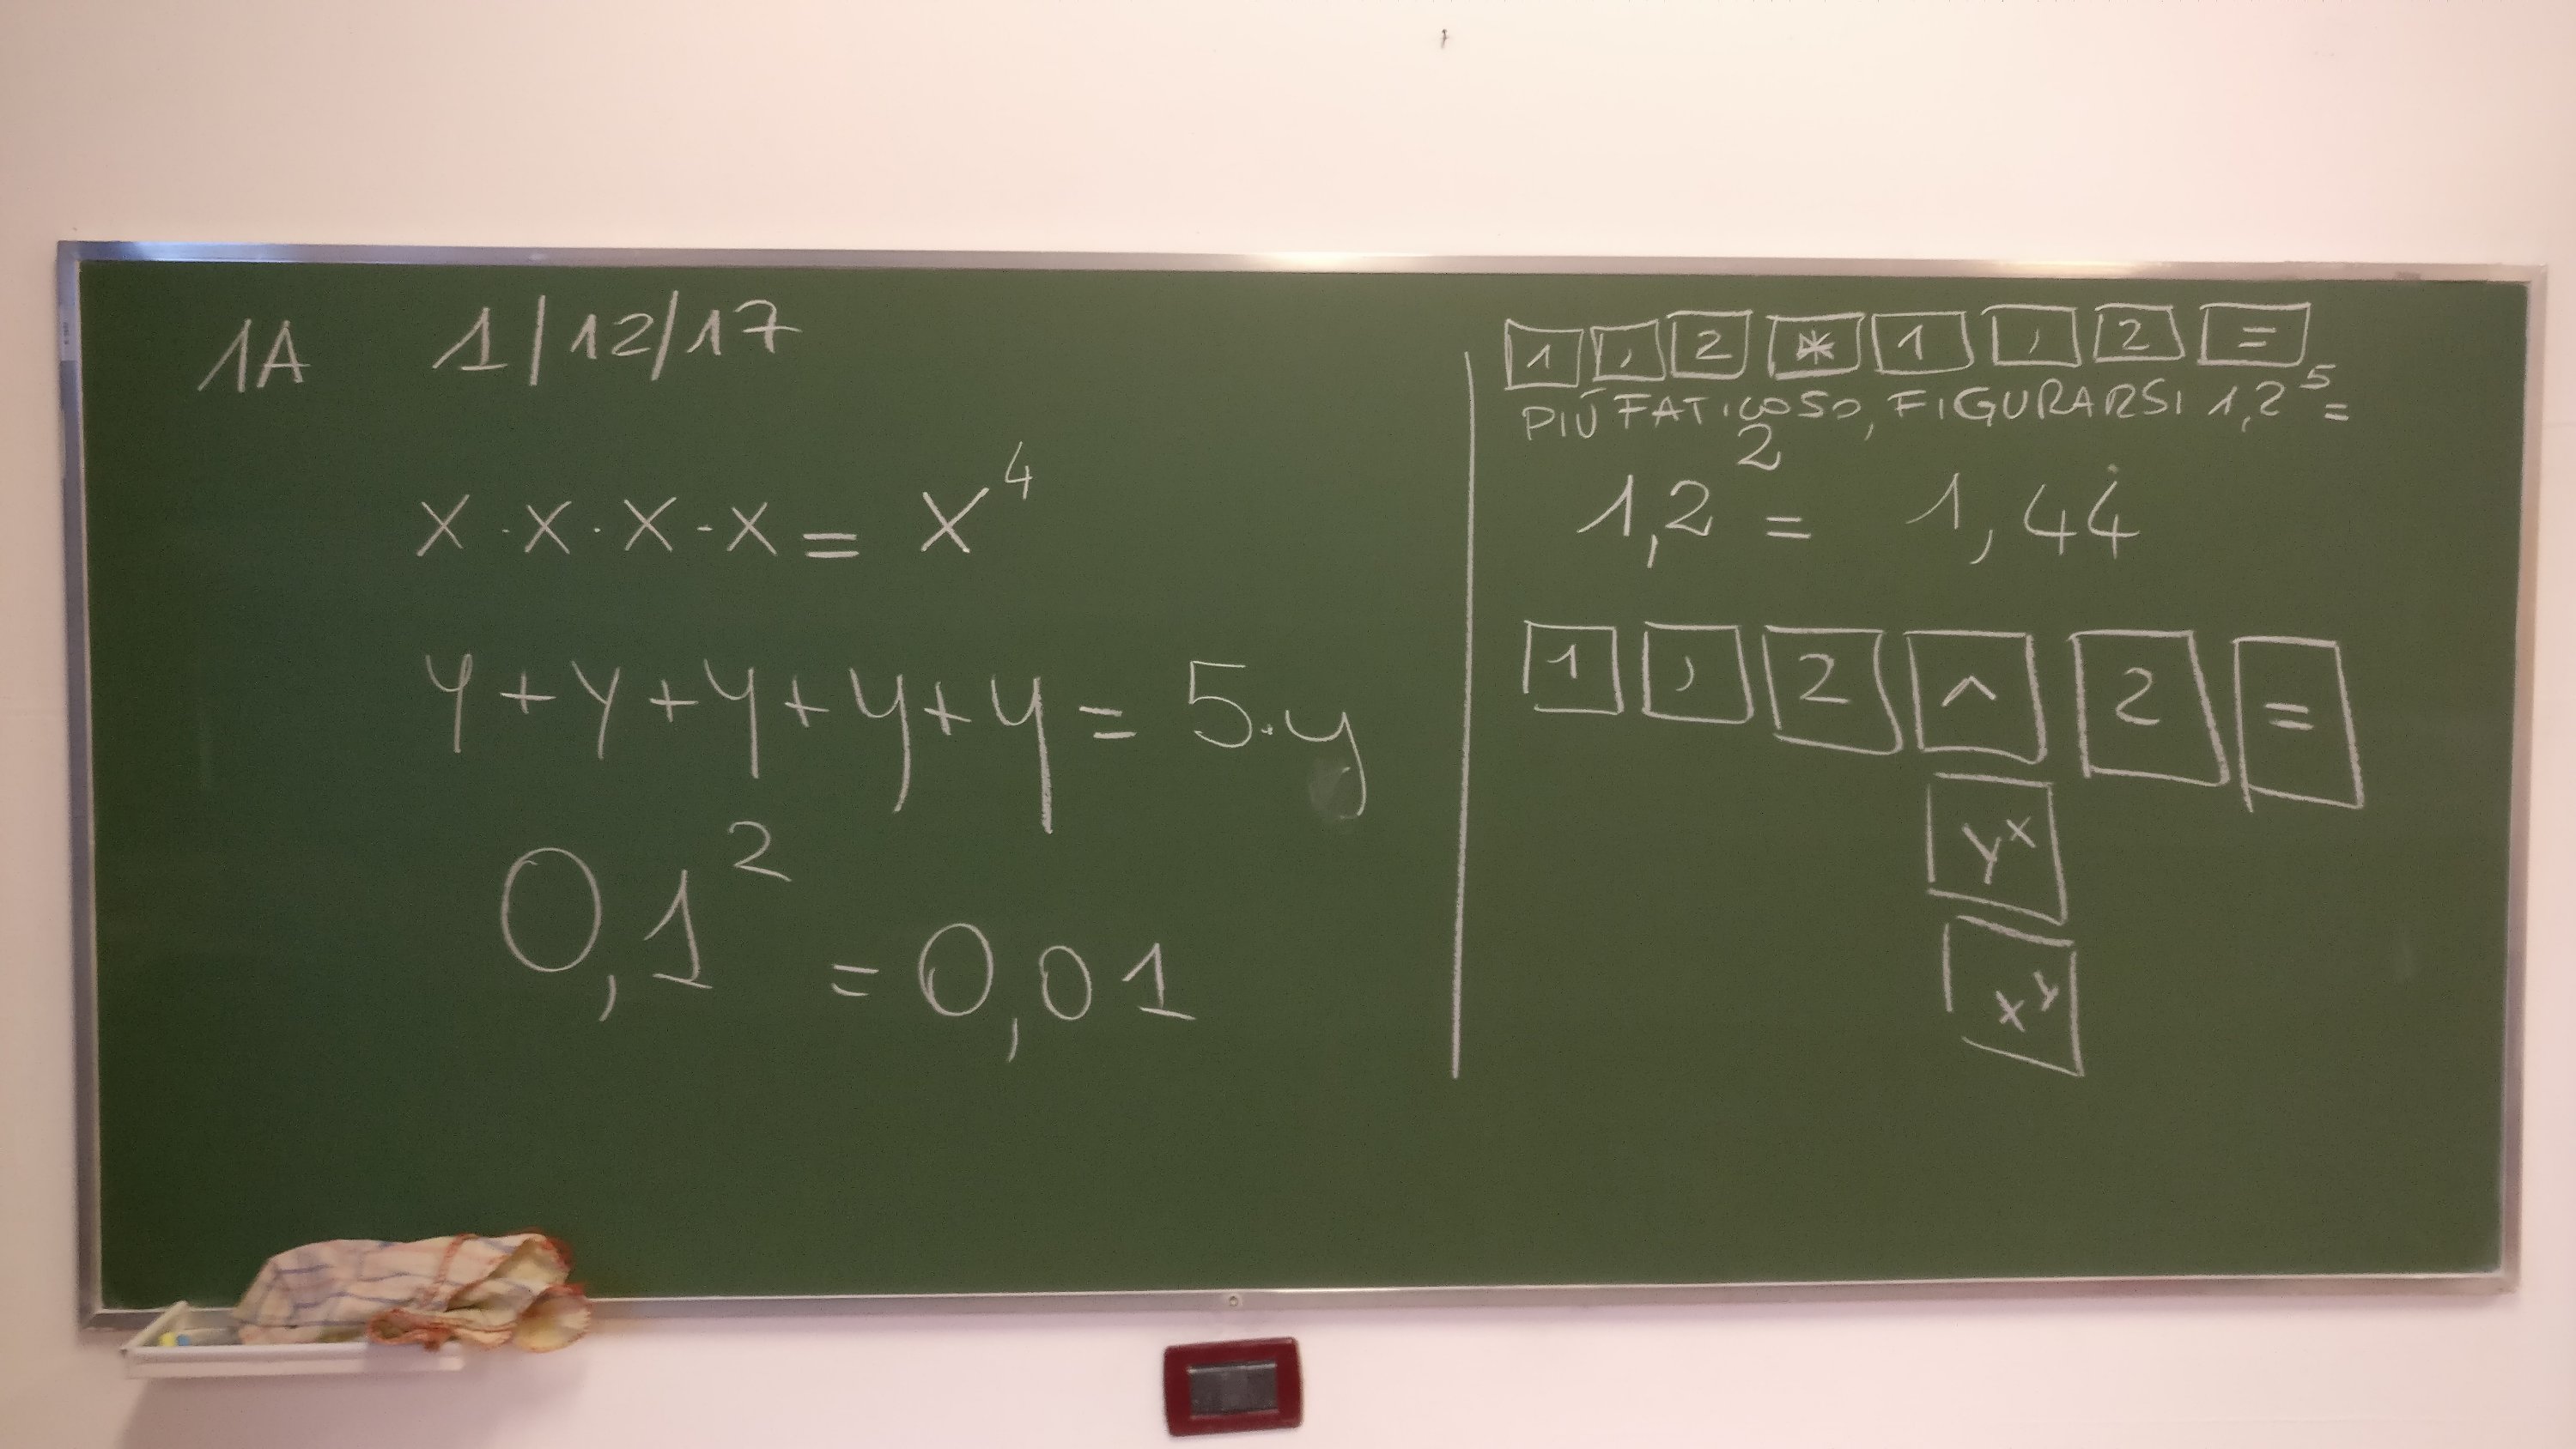 1A 1/12/17
x · x · x · x = x⁴
y + y + y + y + y = 5 · y
0,1² = 0,01
1 , 2 * 1 , 2 =
PIÚ FATICOSO, FIGURARSI 1,2⁵ =
1,2² = 1,44
1 , 2 ^ 2 =
yˣ
xʸ